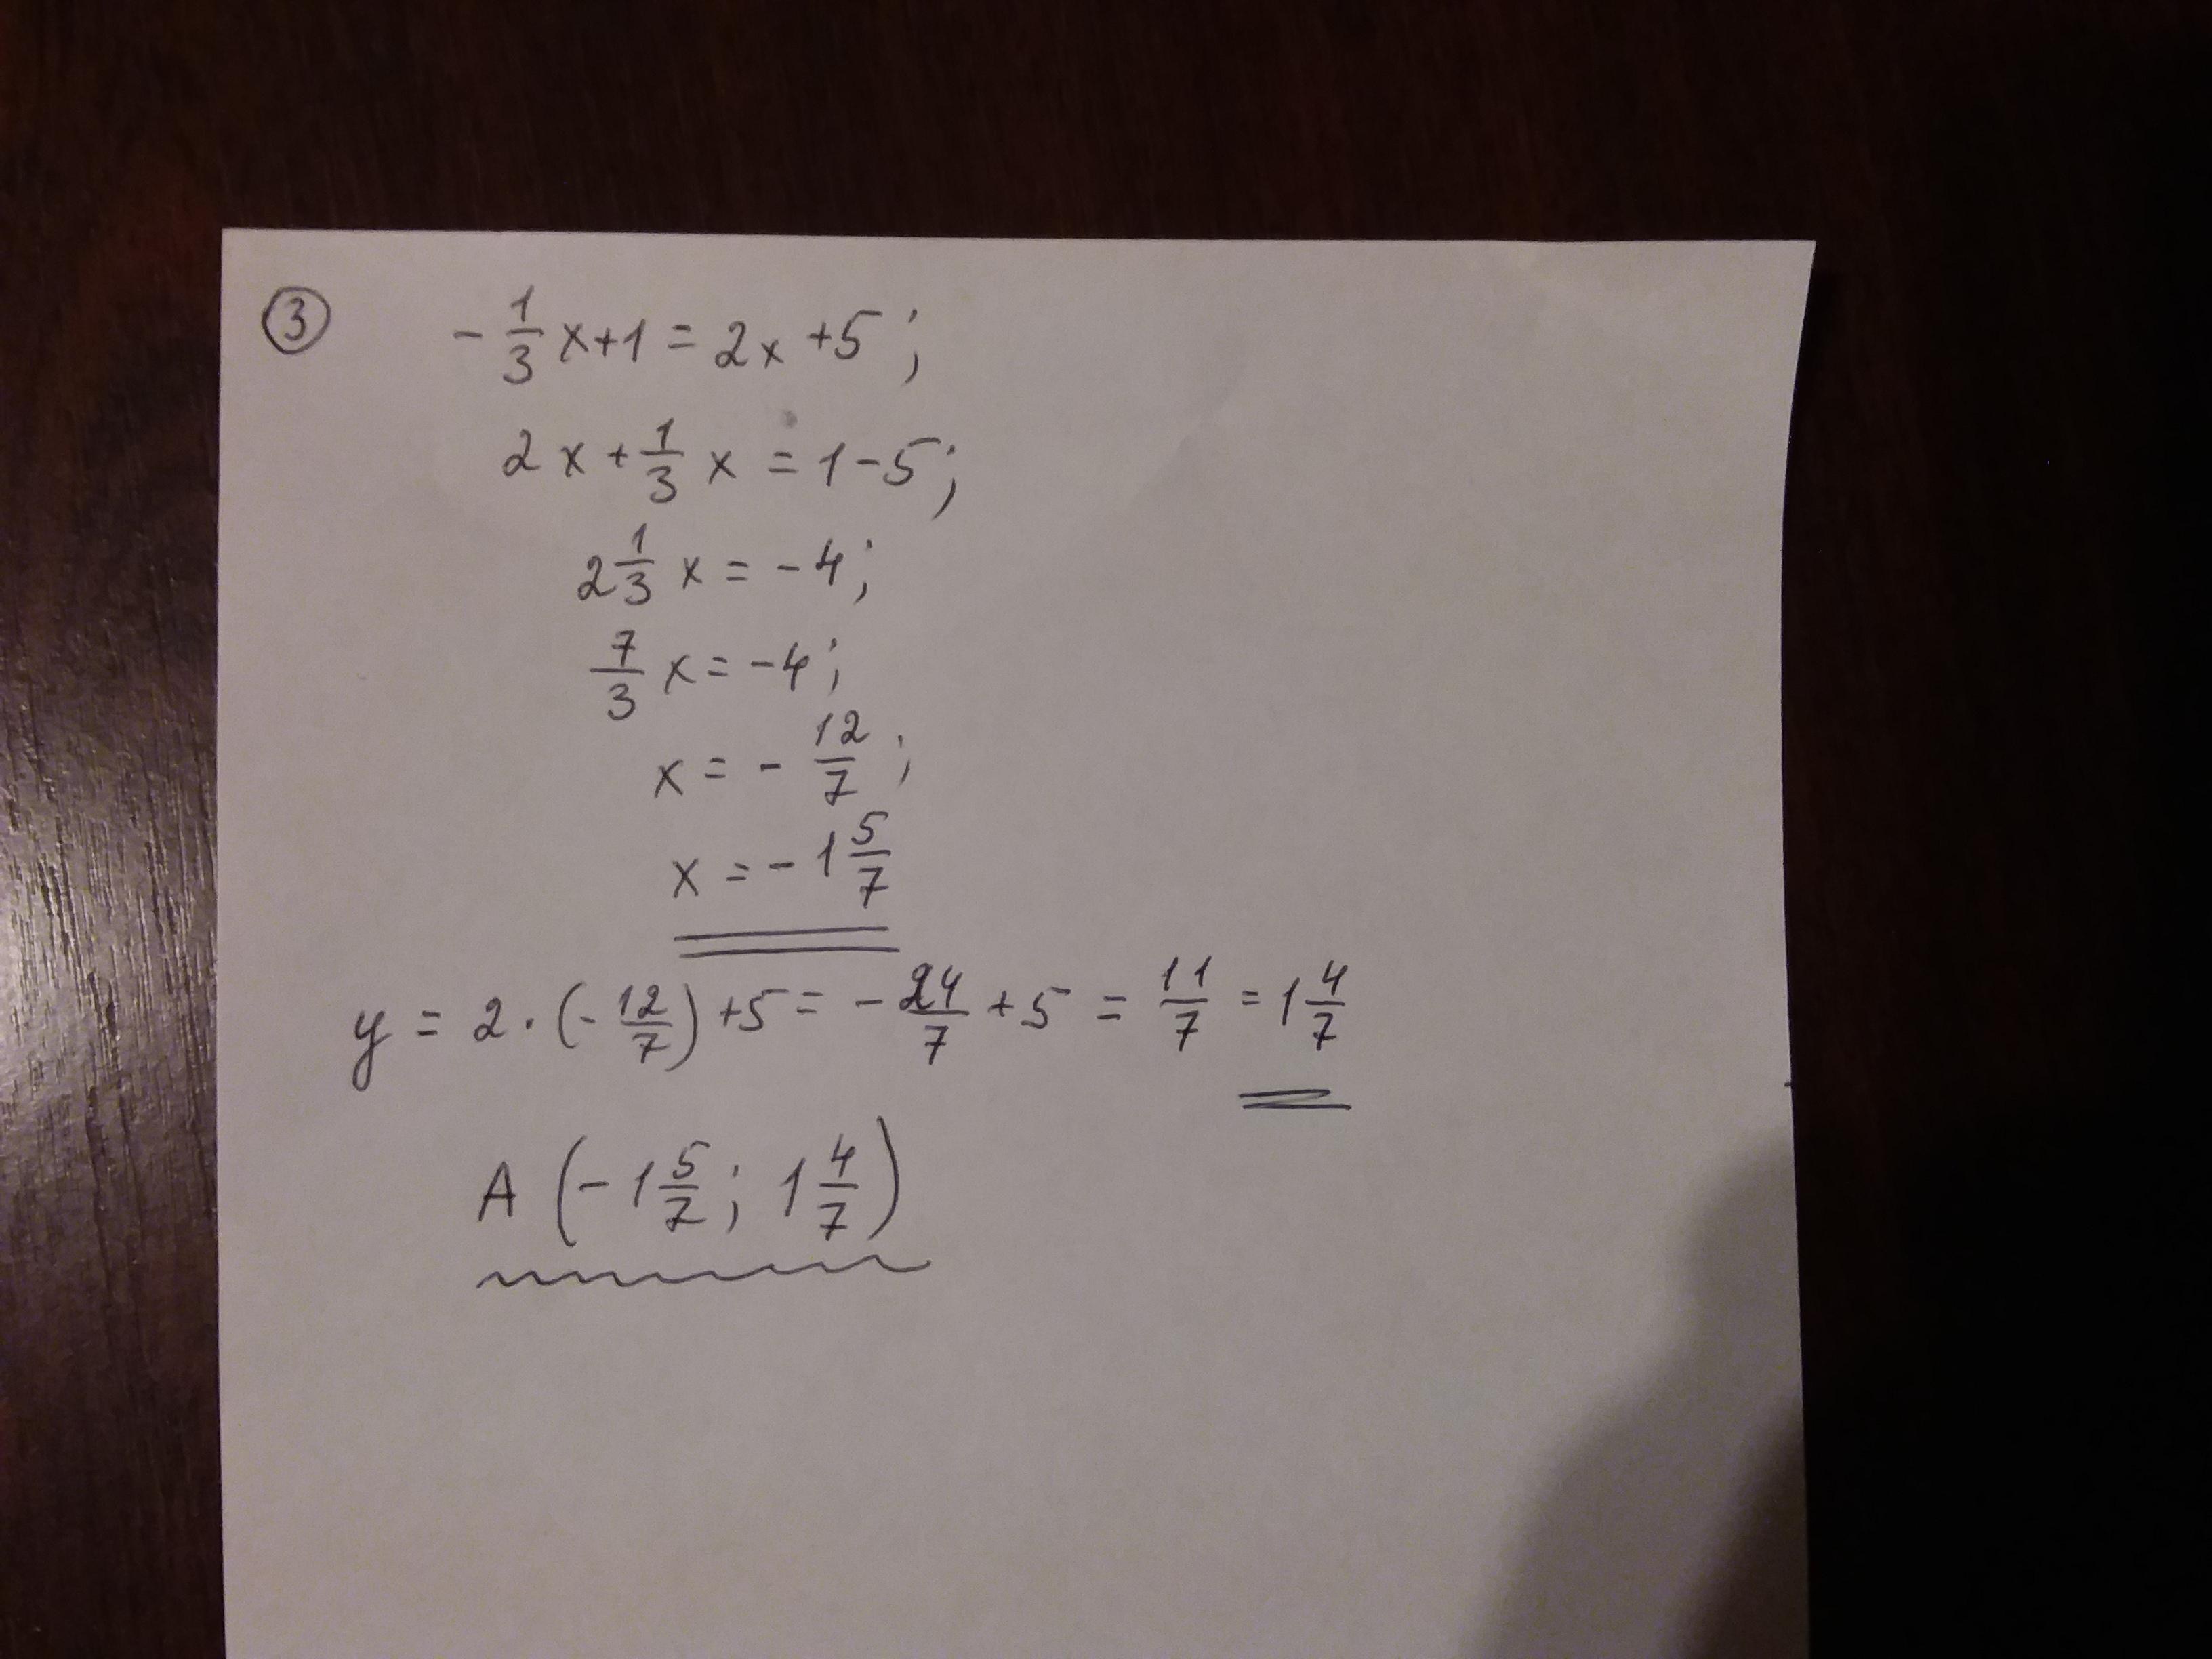 ③ - 1/3 x+1 = 2x +5 ;
2 x + 1/3 x = 1-5 ;
2 1/3 x = - 4 ;
7/3 x = -4 ;
x = - 12/7 ;
x = - 1 5/7
y = 2 · (- 12/7) +5 = - 24/7 + 5 = 11/7 = 1 4/7
A (- 1 5/7 ; 1 4/7)